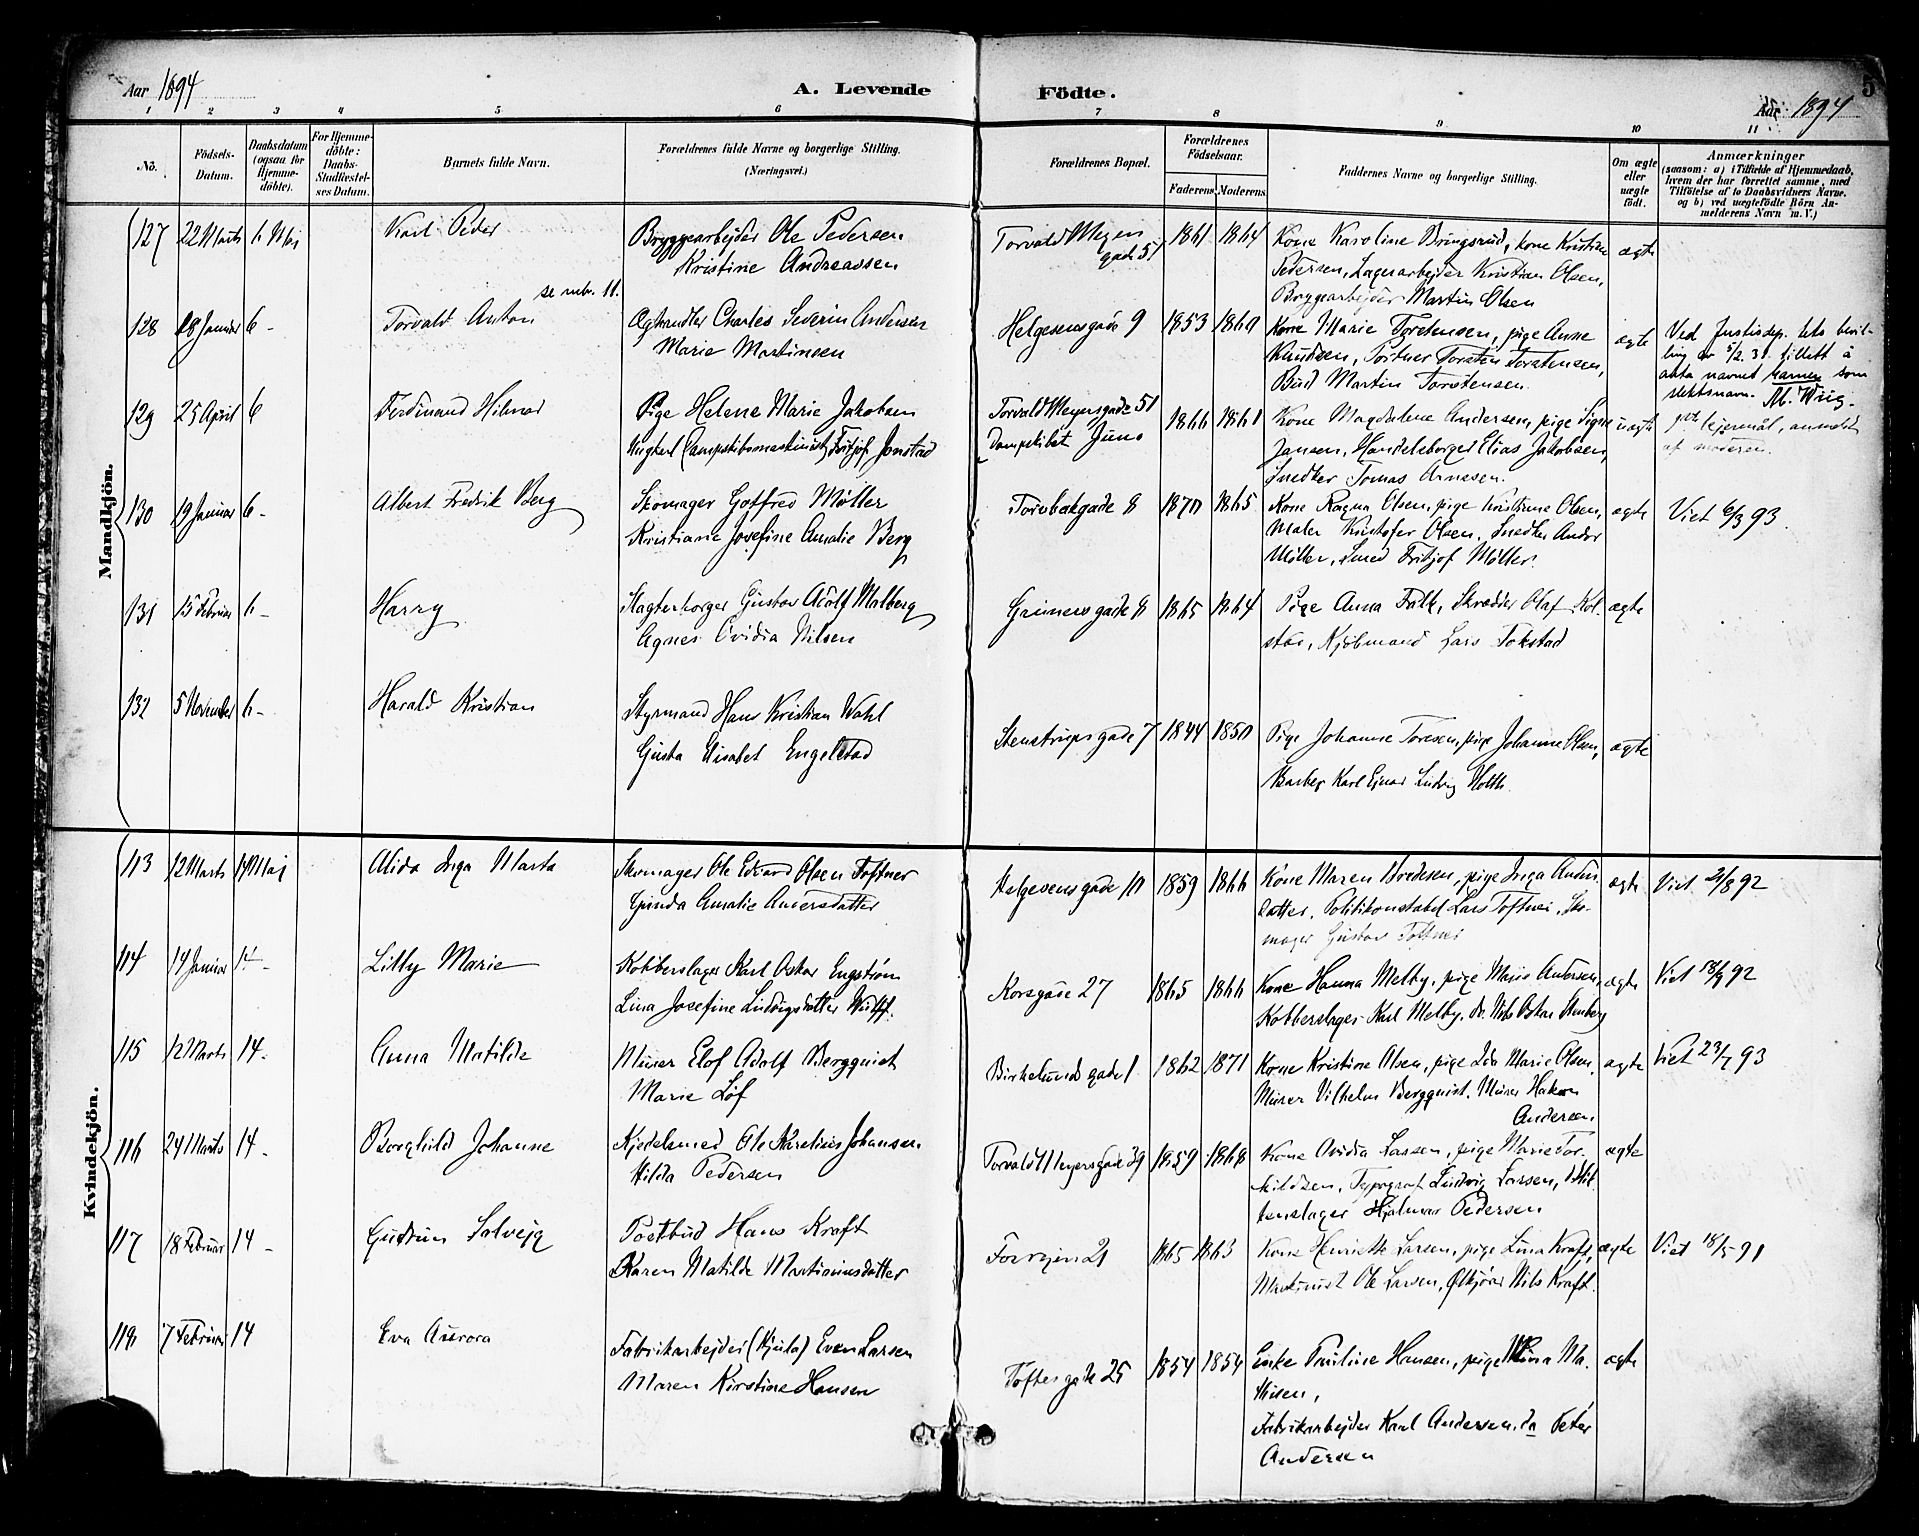 Aar 1894
A. Levende
Födte.
5
Aar 1894
1 2 3 4 5 6 7 8 9 10 11
No.
Födsels-Datum.
Daabsdatum (ogsaa for Hjemme-döbte).
For Hjemme-döbte: Daabs-Stadfæstel-ses Datum.
Barnets fulde Navn.
Forældrenes fulde Navne og borgerlige Stilling. (Næringsvei.)
Forældrenes Bopæl.
Forældrenes Födselsaar.
Faderens. Moderens.
Faddernes Navne og borgerlige Stilling.
Om ægte eller uægte födt.
Anmærkninger
(saasom: a) i Tilfælde af Hjemmedaab, hvem der har forrettet samme, med Tilföielse af to Daabsvidners Navne, og b) ved uægtefödte Börn An-melderens Navn m. V.)
Mandkjön.
127 22 Marts 6 Mai Karl Peder
Bryggearbejder Ole Pedersen
Kristine Andreassen
Torvald Meyers gade 51 1861 1864
Kone Karoline Bringsrud, kone Kristine
Pedersen, Lagerarbejder Kristian Olsen,
Bryggearbejder Martin Olsen
ægte
se mb. 11.
128 28 Januar 6 - Torvald Anton
Æghandler Charles Severin Andersen
Marie Martinsen
Helgesensgade 9 1853 1860
Kone Marie Torstensen, pige Anne
Knudsen, Portner Torsten Torstensen,
Bud Martin Torstensen.
ægte
Ved Justisdep.tets bevil-
ling av 5/2.31 tillatt å
anta navnet Garner som
slektsnavn.
129 25 April 6 Ferdinand Hilmar
Pige Helene Marie Jakobsen
Ungkarl (ampskibsmaskinist) Fritjof Jonstad
Torvald Meyersgade 51
Dampskibet Juno
1866 1861
Kone Magdalene Andersen, pige Signe
Jansen, Handelsborger Elias Jakobsen,
Snedker Tomas Arnesen.
uægte
anmeldt
af moderen.
130 19 Januar 6 - Albert Fredrik Berg
Skomager Gotfred Møller
Kristiane Josefine Amalie Berg
Torvbakgade 8 1870 1865
Kone Ragna Olsen, pige Kristine Olsen,
Maler Kristofer Olsen, Snedker Andor
Møller, Smed Fritjof Møller.
ægte Viet 6/3 93
131 15 Februar 6 - Harry
Slagterborger Gustav Adolf Malberg
Agnes Ovidia Nilsen
Grünersgade 8 1865 1864
Pige Anna Falk, Skrædder Olaf Kol-
stad, Kjøbmand Lars Tokstad
ægte
132 5 November 6 - Harald Kristian
Styrmand Hans Kristian Wahl
Gusta Elisabet Engelstad
Stenstrupsgade 7 1844 1850
Pige Johanne Toresen, pige Johanne Olsen,
Barber Karl Ejnar Ludvig Holth.
ægte
Kvindekjön.
113 12 Marts 14 Maj Alida Inga Marta
Skomager Ole Edvard Olsen Toftner
Gjinda Amalie Andersdatter
Helgesensgade 10 1859 1866
Kone Maren Bredesen, pige Inga Anders-
datter, Politikonstabel Lars Toftner, Sko-
mager Gustav Toftner
ægte Viet 21/8 92
114 14 Januar 14 - Lilly Marie
Kobberslager Karl Oskar Engstrøm
Lina Josefine Ludvigsdatter Wulff.
Korsgade 27 1865 1866
Kone Hanna Melby, pige Maria Andersen,
Kobberslager Karl Melby, do. Nils Oskar Stenberg
ægte Viet 18/9 92
115 12 Marts 14 - Anna Matilde
Murer Elof Adolf Bergquist
Marie Løf
Birkelundsgade 1 1862 1871
Kone Kristine Olsen, pige Ida Marie Olsen,
Murer Vilhelm Bergquist, Murer Hakon
Andersen.
ægte Viet 23/7 93
116 24 Marts 14 - Borghild Johanne
Kjedelsmed Ole Karelius Johansen
Hilda Pedersen
Torvald Meyersgade 29 1859 1868
Kone Ovidia Larsen, pige Marie Tor-
kildsen, Typograf Ludvig Larsen, Blik-
kenslager Hjalmar Pedersen
ægte
117 18 Februar 14 - Gudrun Solvejg
Postbud Hans Kraft
Karen Matilde Martiniusdatter
Torvejen 21 1865 1863
Kone Henriette Larsen, pige Lina Kraft,
Maskinist Ole Larsen, Ølkjører Nils Kraft.
ægte Viet 18/5 91
118 7 Februar 14 Eva Aurora
Fabrikarbejder (Hjula) Even Larsen
Maren Kirstine Hansen
Toftes gade 25 1854 1854
Enke Pauline Hansen, pige Mina Ma-
thisen,
Fabrikarbejder Karl Andersen, do Peter
Andersen
ægte